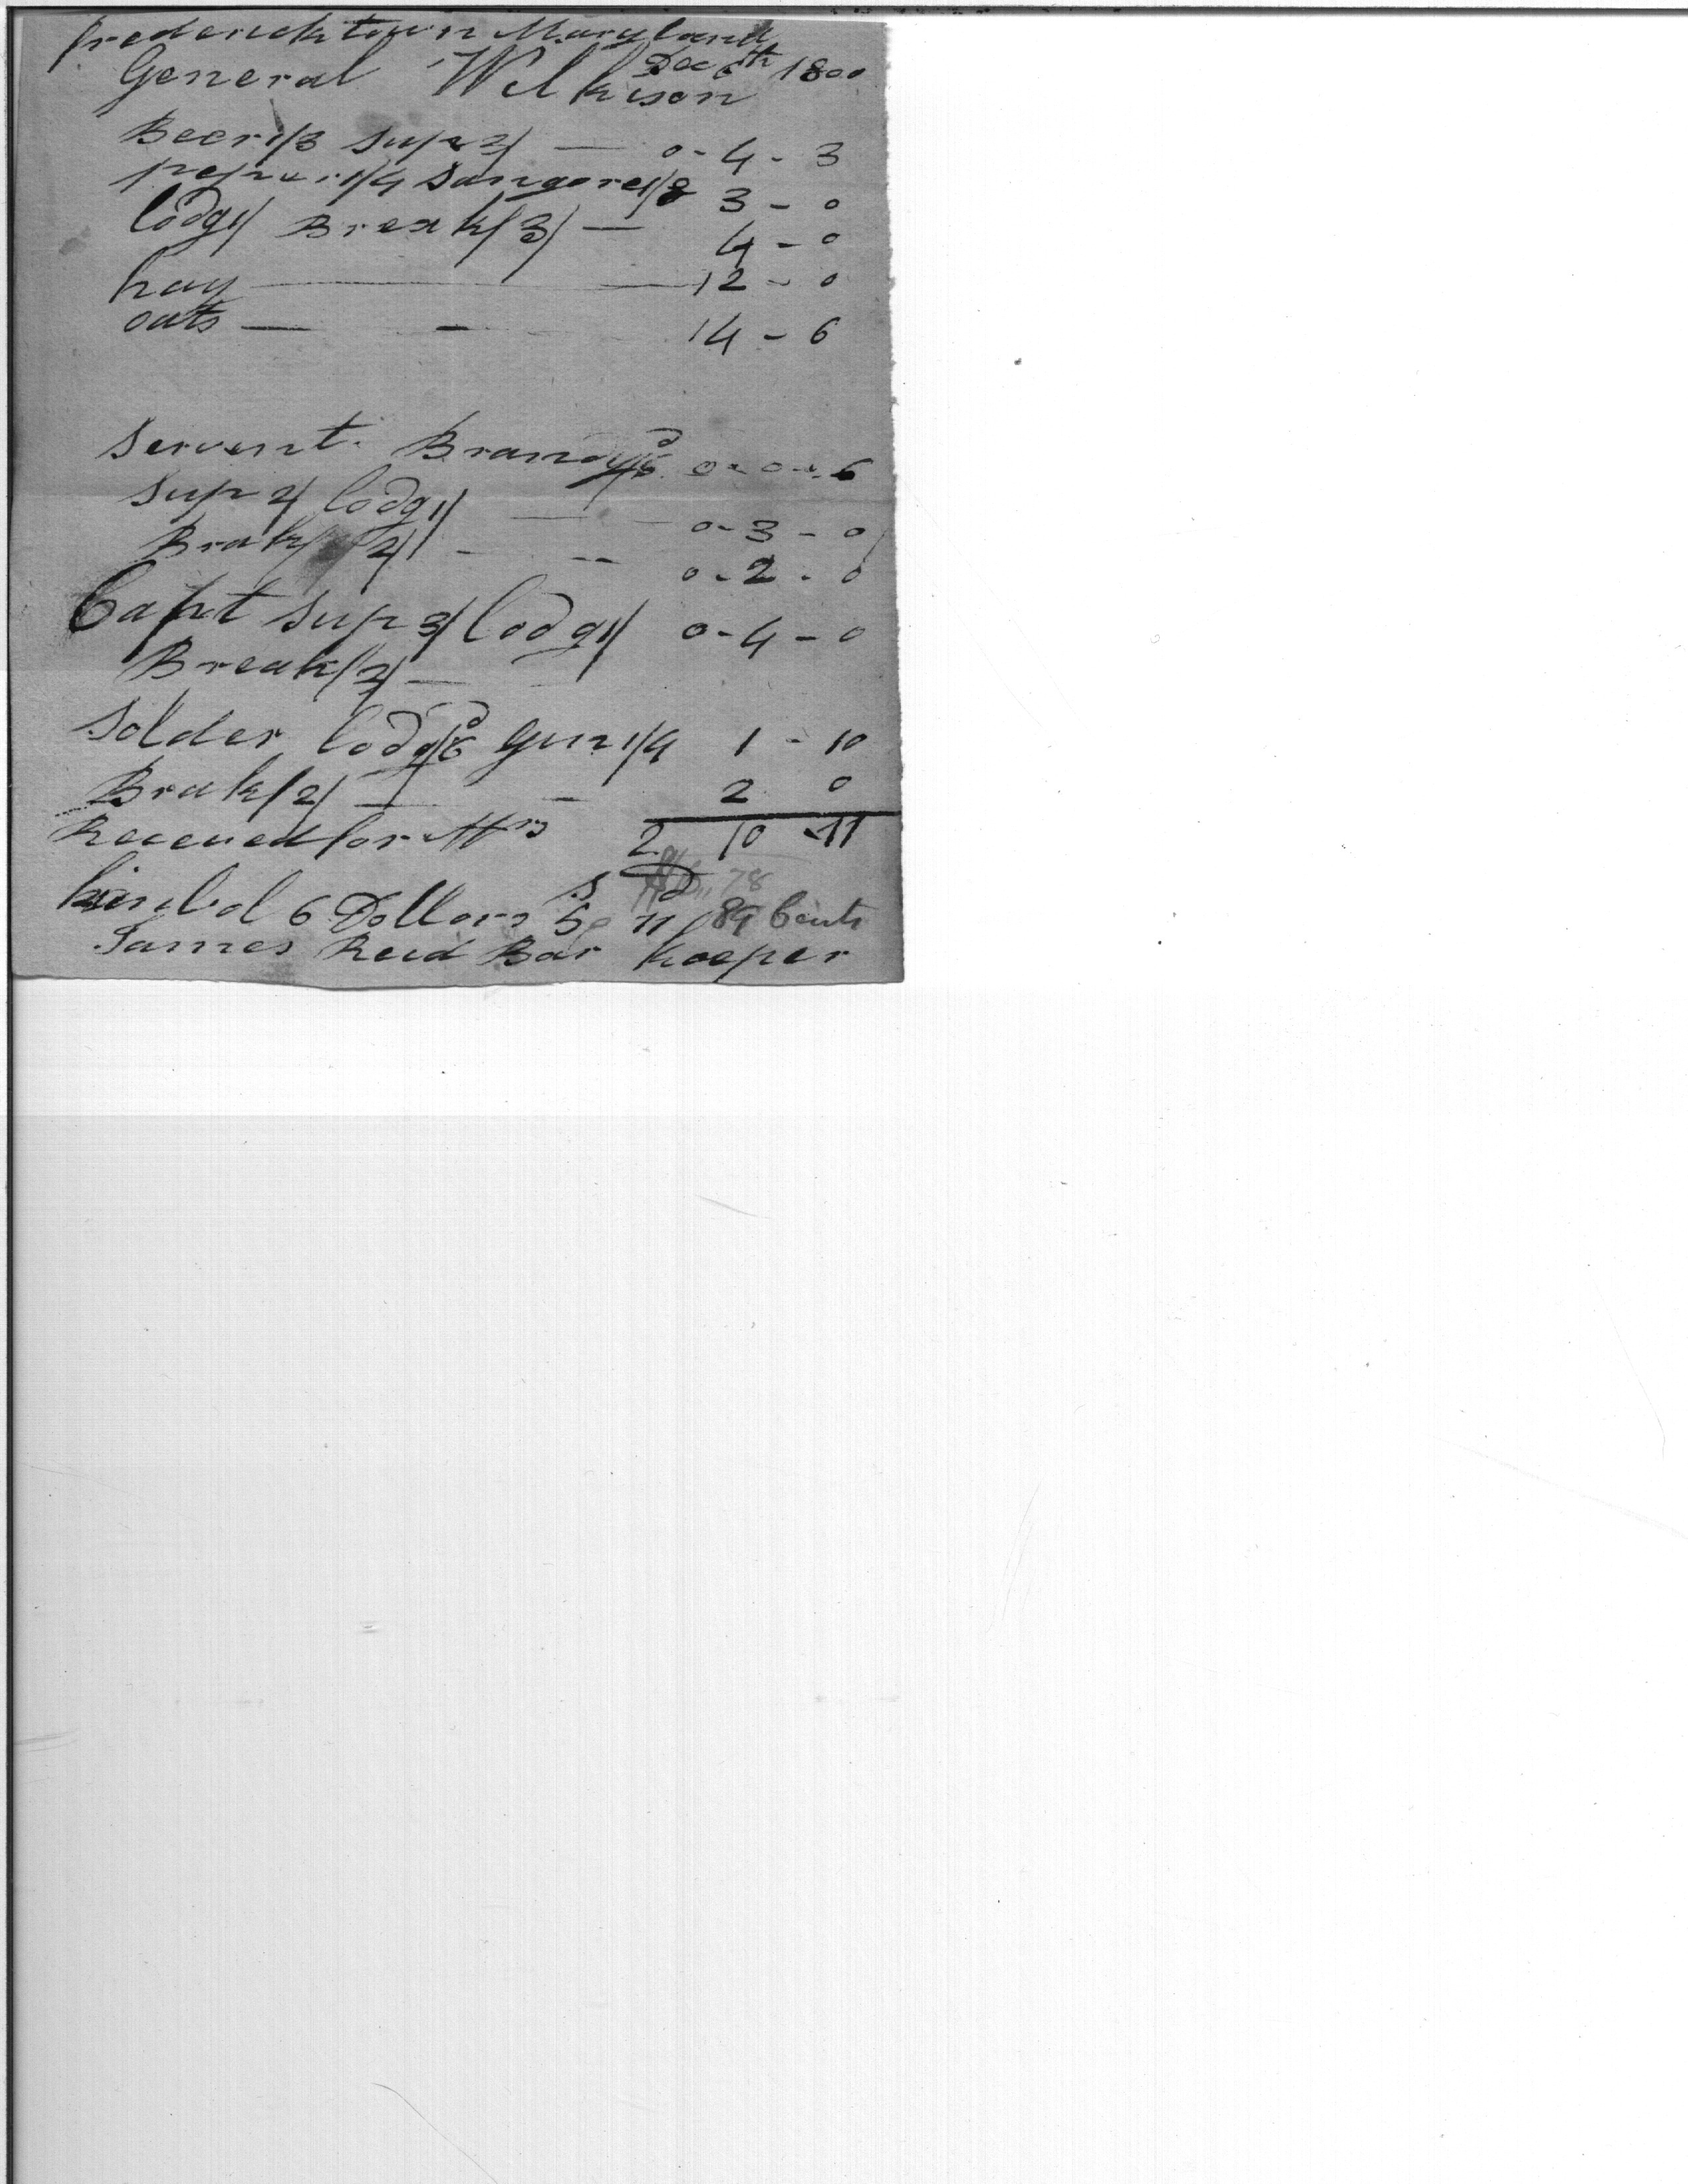 fredericktown Maryland
Dec 6th 1800
General Wilkison
Beer 1/3 Sup 3/ — 0 - 4 - 3
1/4 Sangore 1/8 3 - 0
lodg 1/ Break/3/ — 4 - 0
hay — 12 - 0
oats — - 14 - 6
Servent. Brandy 6d 0 - 0 - 6
Sup 2/ lodg 1/ — - 0 - 3 - 0
Brak/ 2/ - -- 0 - 2 - 0
Capt Sup 3/ lodg 1/ 0 - 4 - 0
Break/2/ —
Solder lodg 6d Gin 1/4 1 - 10
Brak/2/ — - 2 0
Receued for Mrs 2 10 - 11
S D
kimbol 6 Dollars 5 11 / 89 Cents
James Reid Bar Keeper